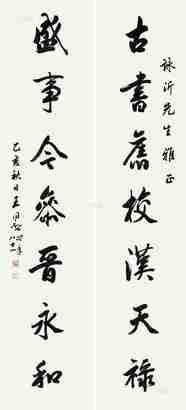 古書舊校漢天祿
詠沂先生雅正
盛事今參晉永和
乙亥秋日王同愈時年八十一